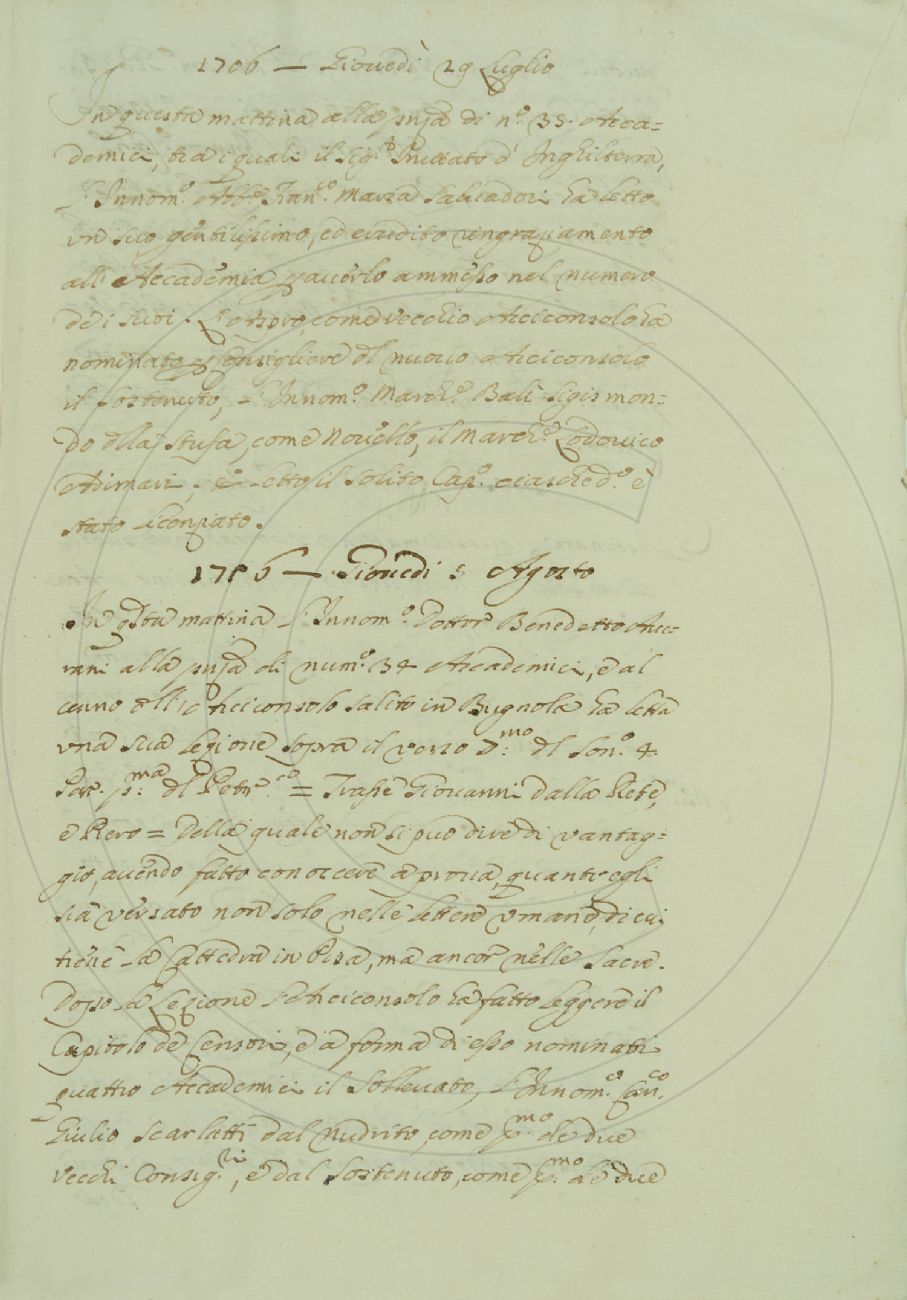 1706 — Giovedì 29 Luglio
In questa mattina alla pñza di n.º 35. Acca=
demici, tra i quali il Sig.r Inviato d' Inghilterra,
l'Innom.º Abb.e Fran.co Maria Salvadori ha letto
un suo gentilissimo, ed erudito ringraziamento
all' Accademia p averlo ammesso nel numero
de i suoi. come vecchio Arciconsolo ha
nominato p Consigliere dl nuovo Arciconsolo
il Sostenuto, l'Innom.º March.e Balì Sigismon=
do dlla Stufa, come Novello, il March.e Lodovico
Adimari, e letto il solito Cap.º ciasched.º è
stato licenziato.
1706 — Giovedì 5 Agosto
In qsta mattina l'Innom.º Dottor Benedetto Ave=
rani alla pñza di num.º 34 Accademici, e al
cenno dll' Arciconsolo salito in Bugnola ha letta
una sua lezione sopra il verso 7.mo dl Son.º 4
Par. p.ma dl Petr.co = Trasse Giovanni dalla Rete,
e Piero = Della quale non si può dire di vantag=
gio, avendo fatto conoscere a prova, quanto egli
sia versato non solo nelle lettere umane, di cui
tiene la Cattedra in Pisa, ma ancor nelle Sacre.
Doppo la Lezione l'Arciconsolo ha fatto leggere il
Capitolo de Censori, e a forma di esso nominati
quattro Accademici il Sollevato, l'Innom.º Can.co
Giulio Scarlatti dal Nudrito, come p.mo de due
vecchi Consig.ri, e dal Sostenuto, come p.mo de due